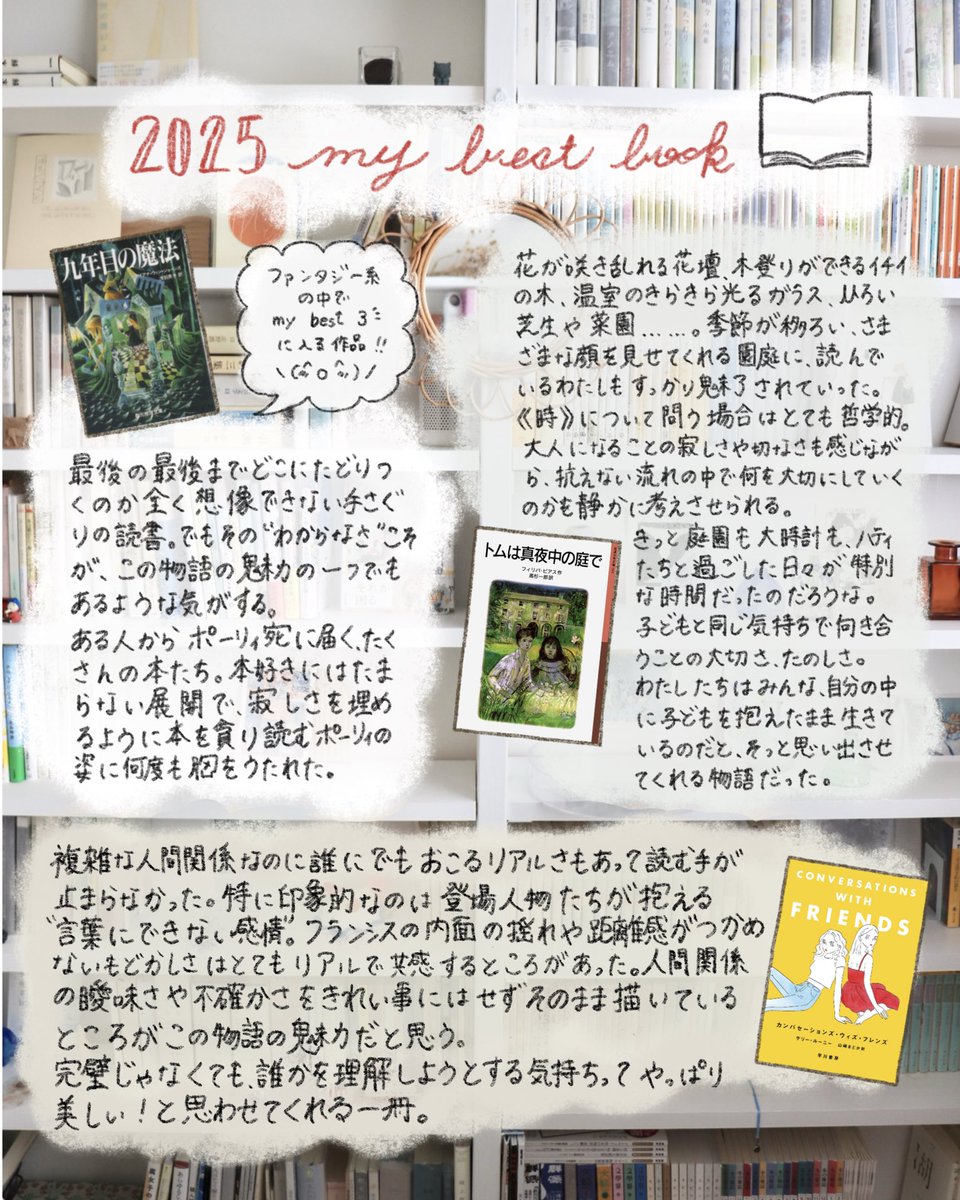 2025 my best book
九年目の魔法
ファンタジー系
の中で
my best 3に
に入る作品!!
\(^o^)/
最後の最後までどこにたどりつ
くのか全く想像できない手さぐ
りの読書。でもその"わからなさ"こそ
が、この物語の魅力の一つでも
あるような気がする。
ある人からポーリィ宛に届く、たく
さんの本たち。本好きにはたま
らない展開で、寂しさを埋め
るように本を貪り読むポーリィの
姿に何度も胸をうたれた。
花が咲き乱れる花壇、木登りができるイチイ
の木、温室のきらきら光るガラス、ひろい
芝生や菜園……。季節が移ろい、さま
ざまな顔を見せてくれる園庭に、読んで
いるわたしもすっかり魅了されていった。
《時》について問う場合はとても哲学的。
大人になることの寂しさや切なさも感じなが
ら、抗えない流れの中で何を大切にしていく
のかを静かに考えさせられる。
きっと庭園も大時計も、ハティ
たちと過ごした日々が特別
な時間だったのだろうな。
子どもと同じ気持ちで向き合
うことの大切さ、たのしさ。
わたしたちはみんな、自分の中
に子どもを抱えたまま生きて
いるのだと、そっと思い出させ
てくれる物語だった。
トムは真夜中の庭で
フィリパ・ピアス作
高杉一郎訳
複雑な人間関係なのに誰にでもおこるリアルさもあって読む手が
止まらなかった。特に印象的なのは登場人物たちが抱える
"言葉にできない感情"。フランシスの内面の揺れや距離感がつかめ
ないもどかしさはとてもリアルで共感するところがあった。人間関係
の曖昧さや不確かさをきれい事にはせずそのまま描いている
ところがこの物語の魅力だと思う。
完璧じゃなくても、誰かを理解しようとする気持ちってやっぱり
美しい!と思わせてくれる一冊。
CONVERSATIONS
WITH
FRIENDS
カンバセーションズ・ウィズ・フレンズ
サリー・ルーニー 山崎まどか訳
早川書房